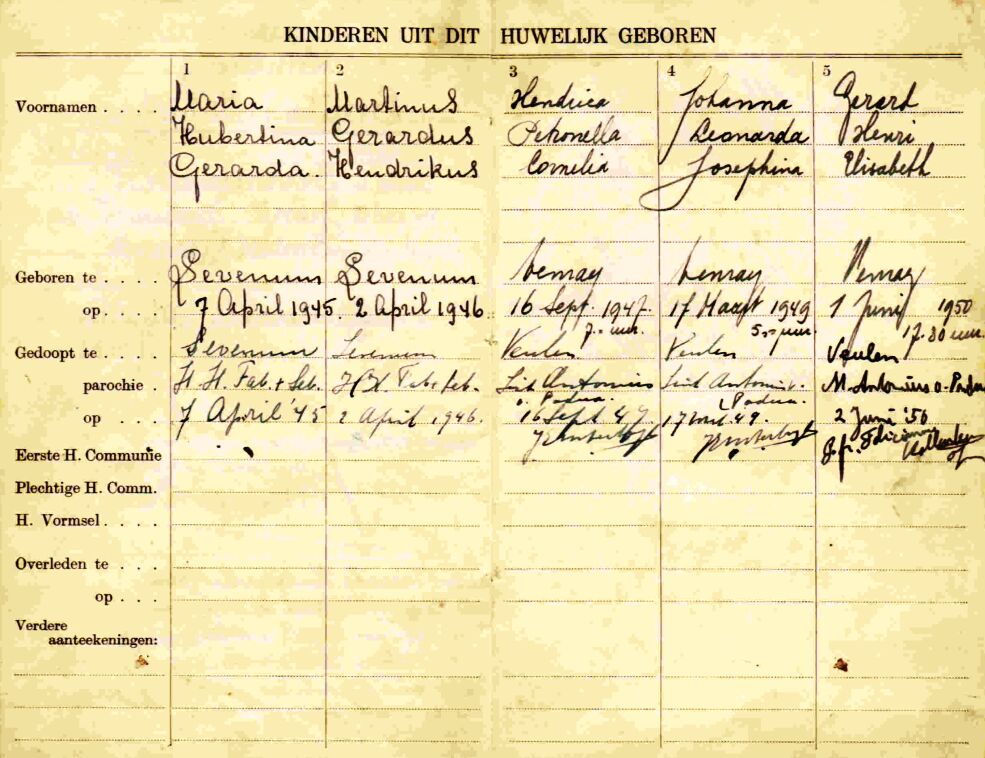 KINDEREN UIT DIT HUWELIJK GEBOREN
1 2 3 4 5
Voornamen . . . . Maria Martinus Hendrica Johanna Gerard
Hubertina Gerardus Petronella Leonarda Henri
Gerarda. Hendrikus Cornelia Josephina Elisabeth
Geboren te . . . Sevenum Sevenum Venray Venray Venray
op. . . . 7 April 1945. 2 April 1946 16 Sept. 1947. 17 Maart 1949 1 Juni 1950
7.- uur. 5.- uur 17.30 uur.
Gedoopt te . . . Sevenum Sevenum Veulen Veulen Veulen
parochie . H.H. Fab. + Seb. Fab. Seb. Antonius Antonius Antonius a. Padua
v. Padua. v. Padua.
op . . . 7 April '45 2 April 1946. 16 Sept. 47 17 49. 2 Juni '50
Eerste H. Communie
Plechtige H. Comm.
H. Vormsel . . . .
Overleden te . . .
op . . .
Verdere
aanteekeningen: